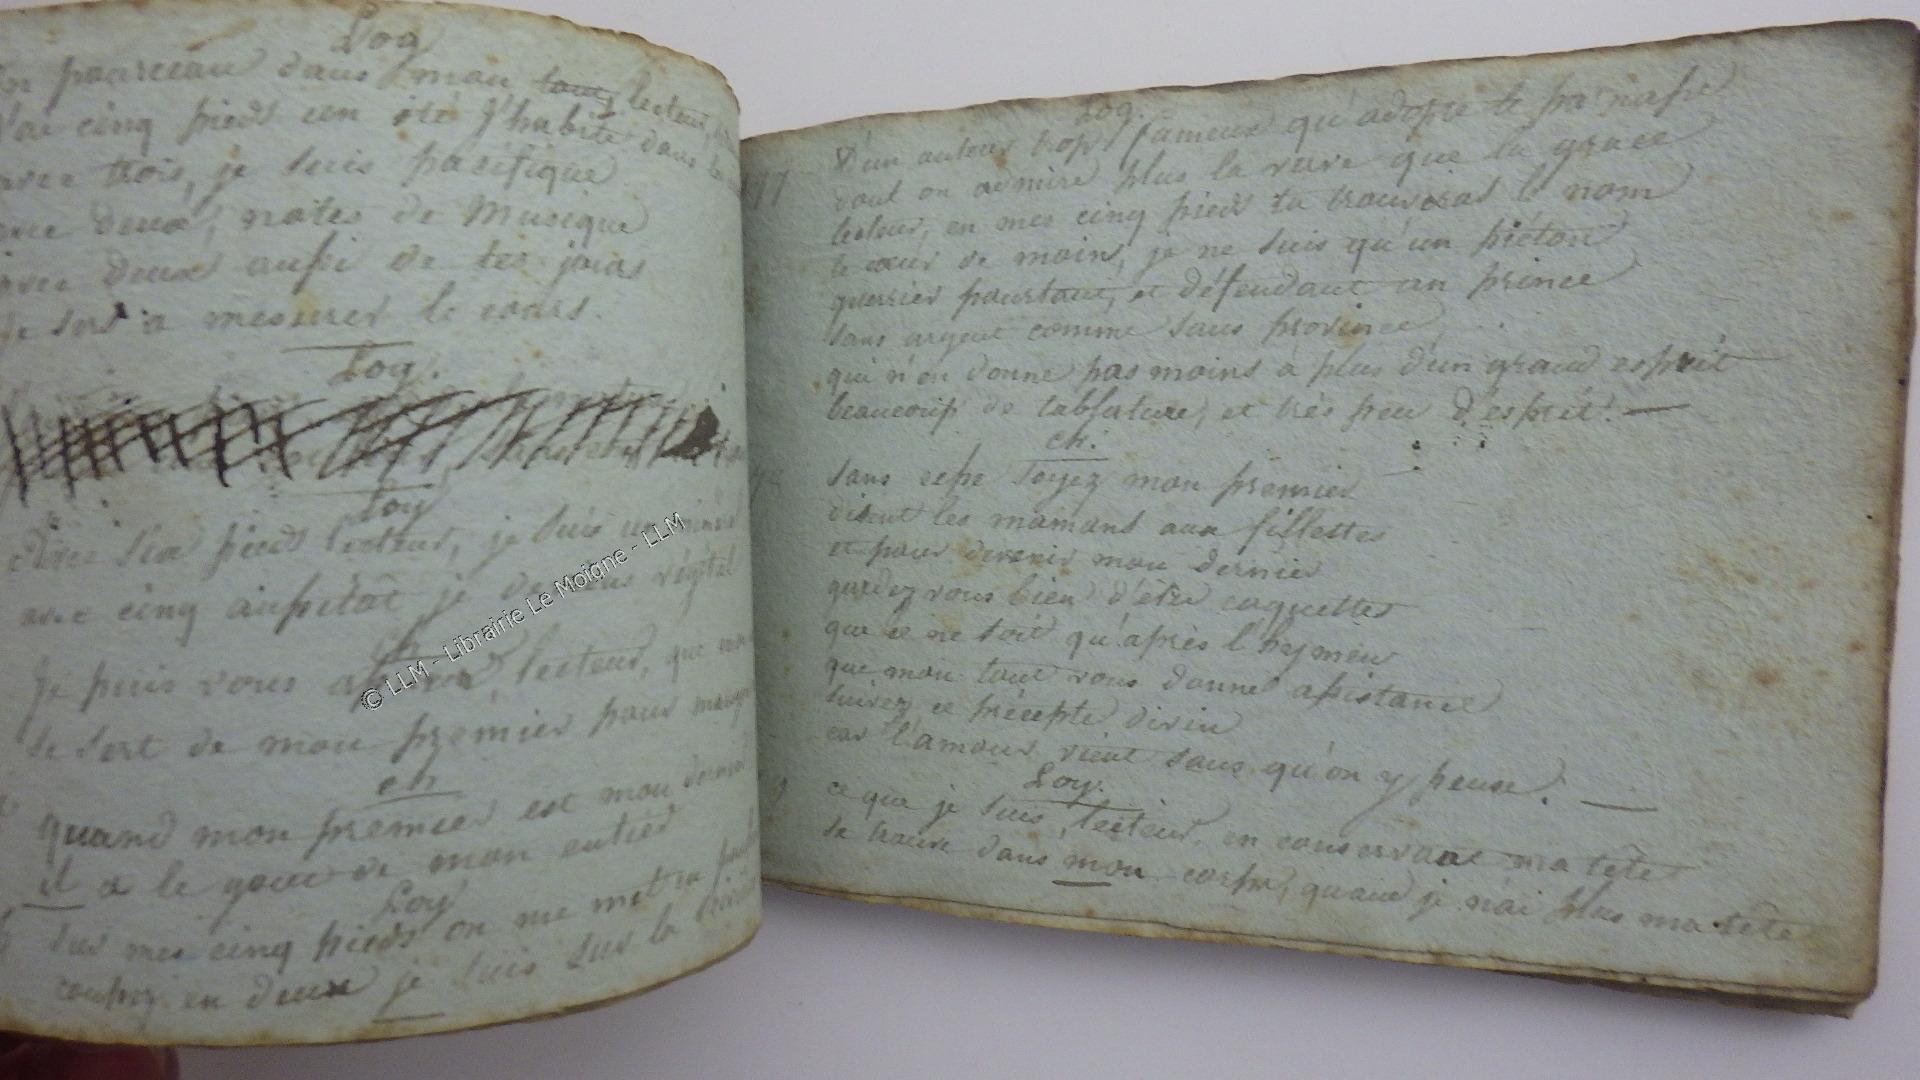 Log
un pourceau dans mon tout, lecteur,
J'ai cinq pieds un été j'habite dans
avec trois, je suis pacifique
avec deux, notes de Musique
avec deux aussi de tes jours
je sers a mesurer le cours.
Log.
Log
avec six pieds lecteur, je suis un minéral
avec cinq aussitôt je deviens végétal
ch
Je puis vous assurer, lecteur, que
se sert de mon premier pour manger
ch
quand mon premier est mon dernier
il a le gout de mon entier
Log
sur mes cinq pieds on me met en
coupez en deux je suis sur la
Log.
D'un auteur trop fameux qu'adopte le parnasse
dont on admire plus la verve que la grace
lecteur, en mes cinq pieds tu trouveras le nom
le cœur de moins, je ne suis qu'un piéton
guerrier pourtant, et défendant un prince
sans argent comme sans province
qui n'en donne pas moins à plus d'un grand esprit
beaucoup de tablature, et très peu d'esprit.
ch.
sans cesse soyez mon premier
disent les mamans aux fillettes
et pour devenir mon dernier
gardez vous bien d'être coquettes
que ce ne soit qu'après l'hymen
que mon tout vous donne assistance
suivez ce précepte divin
car l'amour vient sans qu'on y pense.
Log.
ce que je suis, lecteur, en conservant ma tête
se trouve dans mon corps, quand je n'ai plus ma tête
© LLM - Librairie Le Moigne - LLM